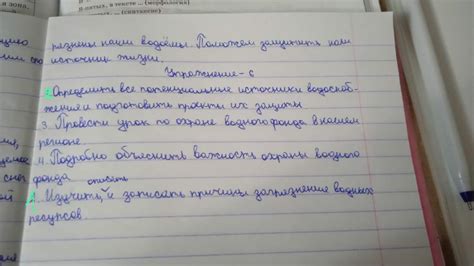 в пятых, в тексте ... (морфология)
(синтаксис)
резнены наши водоёмы. Поможем защитить нам
источник жизни.
Упражнение-6
2. Определить все потенциальные источники водоснаб-
жения и подготовить проекты их защиты
3. Провести урок по охране водного фонда в нашем
регионе
4. Подробно объяснить важность охраны водного
фонда
описать
1. Изучить, и записать причины загрязнение водных
ресурсов.